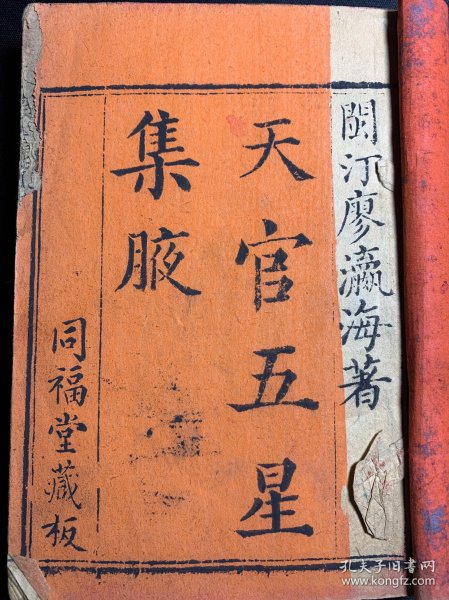 閩汀廖瀛海著
天官五星
集腋
同福堂藏板
孔夫子旧书网
www.kongfz.com